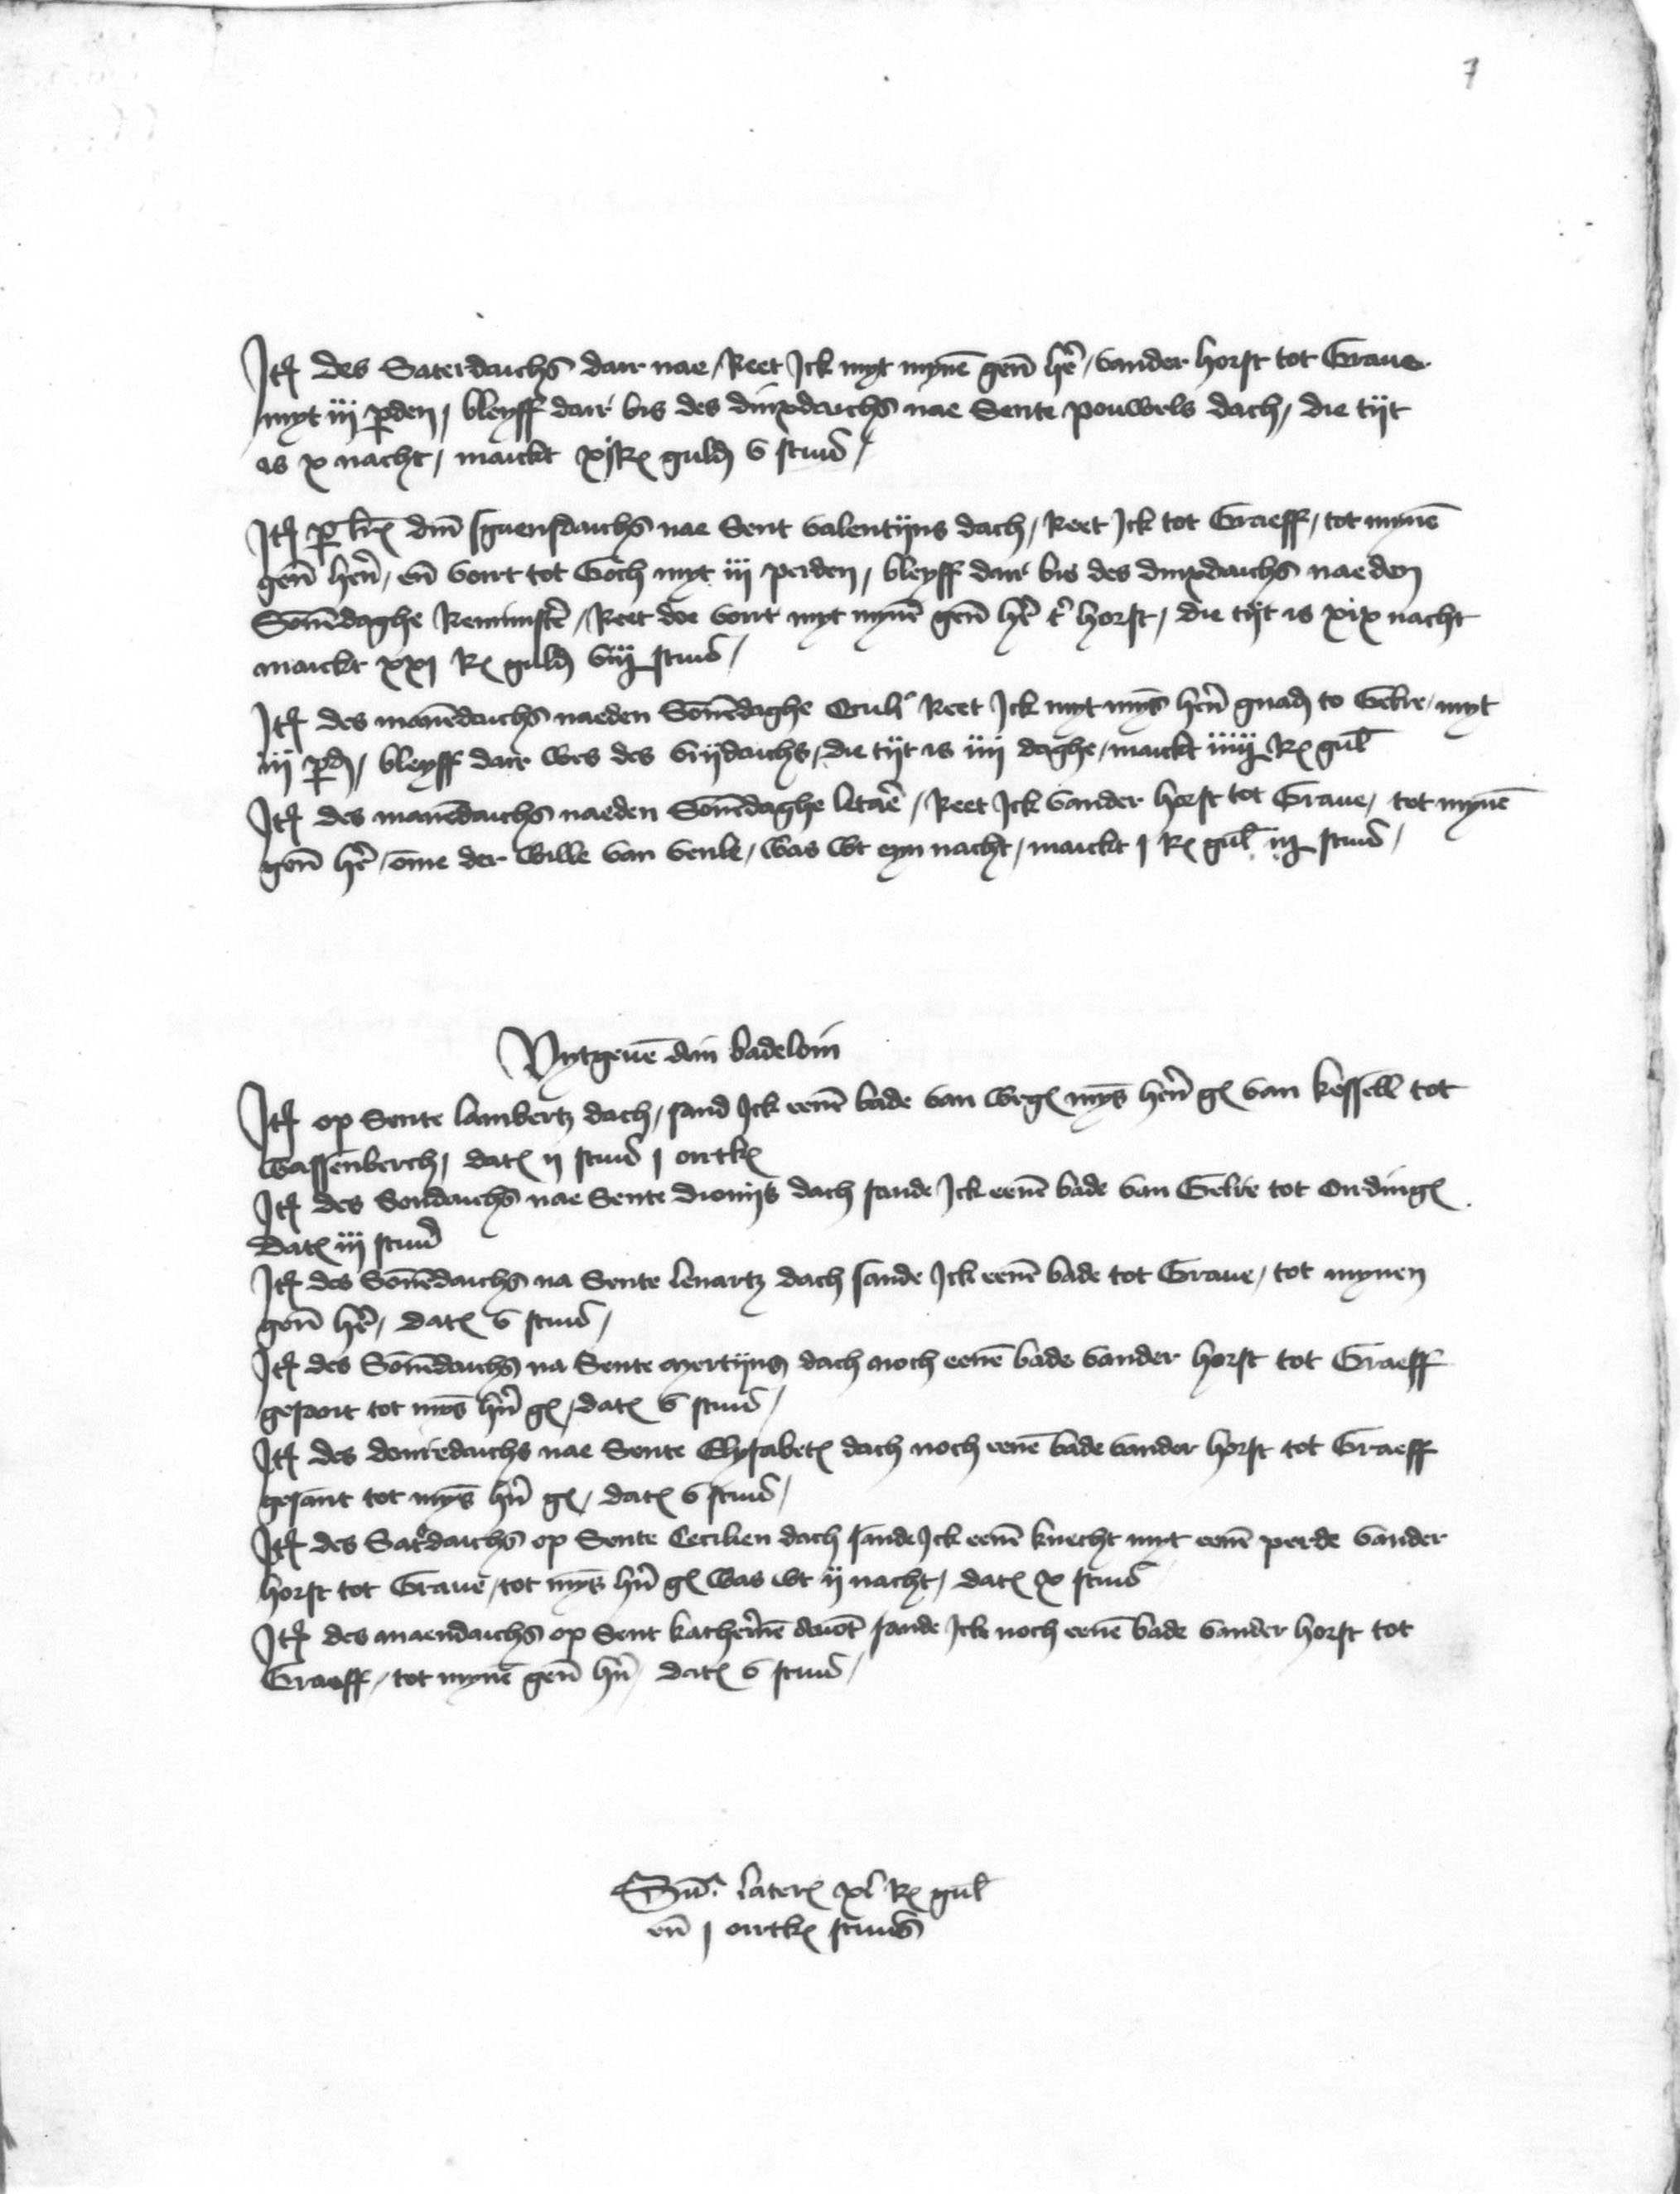 7
Itẽ des Saterdaichs dair nae / Reet Ick myt mynē gen̄ hẽ / vander horst tot Graue
myt iij p̱den / bleyff dair bis des dinxdaichs nae Sente pouwels dach / die tijt
is x nacht / maickt xj Rꝭ guldẽ v stuuˀ /
Itẽ p̱ lrꝭ dn̄i sguensdaichs nae Sent valentijns dach / Reet Ick tot Graeff / tot mynē
gen̄ herñ / eñ vort tot Goch myt iij perden / bleyff dair bis des dinxdaichs nae den
Son̄edaghe Reminis̃ce / Reet doe vort myt mynē gen̄ hẽ tˀ horst / die tijt is xix nacht
maickt xxj Rꝭ guldẽ viij stuuˀ /
Itẽ des manēdaichs nae den Son̄edaghe Oculi Reet Ick myt myns̄ herñ gnadẽ to Gelre / myt
iij p̱dẽ / bleyff dair wes des vrijdaichs / die tijt is iiij daghe / maickt iiij Rꝭ gul̄
Itẽ des manēdaichs nae den Son̄edaghe letarẽ / Reet Ick vander horst tot Graue / tot mynē
gen̄ hẽ / om̄e der wille van venle / was wt eyn nacht / maickt j Rꝭ gul̄ iij stuuˀ /
Vytgeuē ain badeloin
Itẽ op Sente lambertz dach / sand Ick eenē bade van wegꝭ myns̄ herñ gꝭ van kessell tot
wassenberch / datꝭ ij stuuˀ j ortkꝭ
Itẽ des Sondaichs nae Sente dionijs dach sande Ick eenē bade van Gelre tot Ordingꝭ
datꝭ iij stuuˀ
Itẽ des Son̄edaichs na Sente lenartz dach sande Ick eenē bade tot Graue / tot mynen
gen̄ hẽ / datꝭ v stuuˀ /
Itẽ des Son̄edaichs na Sente mertijns dach noch eenē bade vander horst tot Graeff
gesant tot myns̄ hñ gꝭ / datꝭ v stuuˀ /
Itẽ des donredaichs nae Sente Elysabetꝭ dach noch eenē bade vander horst tot Graeff
gesant tot myns̄ hñ gꝭ / datꝭ v stuuˀ /
Itẽ des Satˀdaichs op Sente Cecilien dach sande Ick eenē knecht myt eenē perde vander
horst tot Graue / tot myns̄ hñ gꝭ was wt ij nacht / datꝭ x stuuˀ
Itẽ des maendaichs op Sent katherinē auōt sande Ick noch eenē bade vander horst tot
Graeff / tot mynē gen̄ hñ / datꝭ v stuuˀ /
Sūᵃ laterꝭ xl Rꝭ gul̄
eñ j ortkꝭ stuuˀs